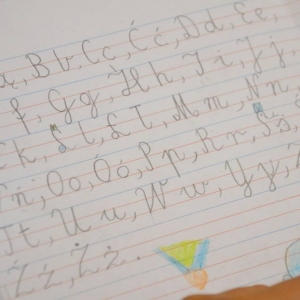 ą, B b, C c, Ć ć, D d, E e,
f, G g, H h, I i, J j,
k, L l, Ł ł, M m, N n,
ń, O o, Ó ó, P p, R r, S s,
T t, U u, W w, Y y,
Ź ź, Ż ż.